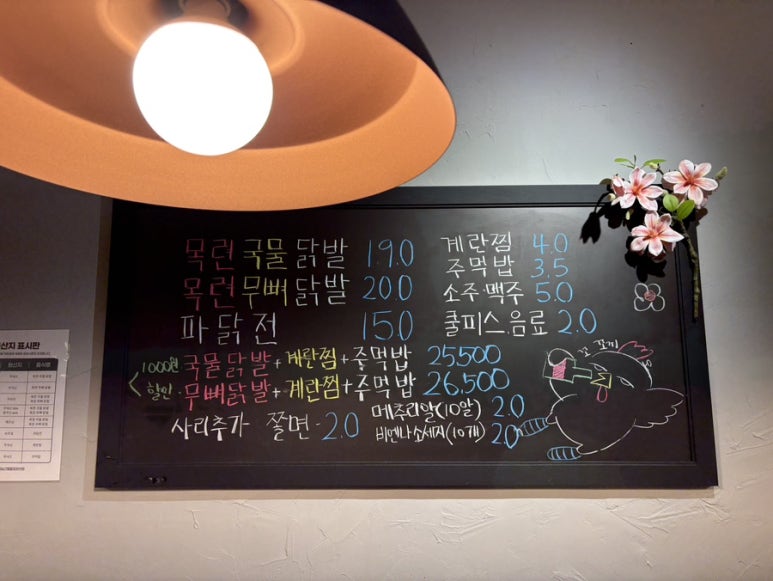 목련 국물 닭발 19.0
목련 무뼈 닭발 20.0
파 닭 전 15.0
계란찜 4.0
주먹밥 3.5
소주·맥주 5.0
쿨피스.음료 2.0
1000원 할인
국물닭발+계란찜+주먹밥 25500
무뼈닭발+계란찜+주먹밥 26.500
사리추가 쫄면-2.0
메추리알(10알) 2.0
비엔나소세지(10개) 2.0
원산지 표시판